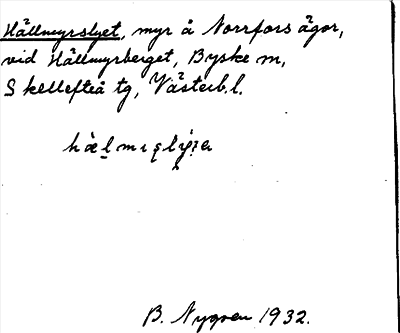 Hällmyrslyet, myr å Norrfors ägor,
vid Hällmyrberget, Byske sn,
Skellefteå tg, Västerb.l.
B. Nygren 1932.